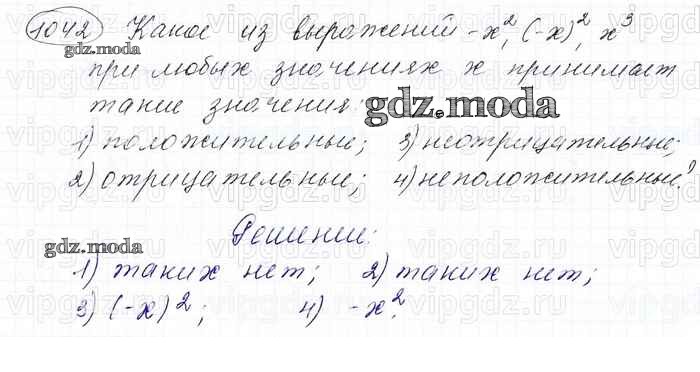 1042 Какое из выражений -x², (-x)², x³
gdz.moda
при любых значениях x принимает
такие значения:
gdz.moda
1) положительные; 3) неотрицательные;
2) отрицательные; 4) неположительные?
Решение:
gdz.moda
1) таких нет; 2) таких нет;
3) (-x)²; 4) -x².